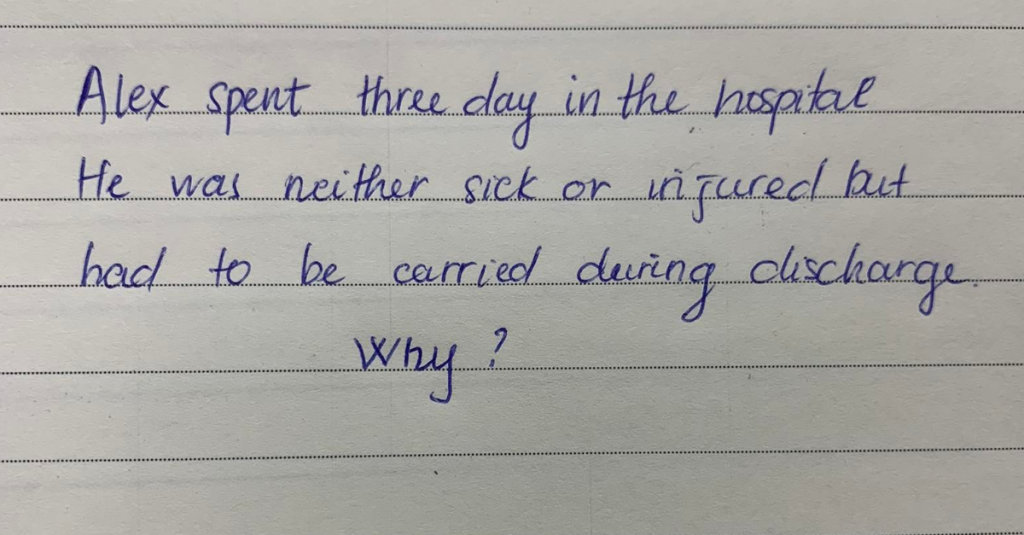 Alex spent three day in the hospital
He was neither sick or injured but
had to be carried during discharge.
Why?